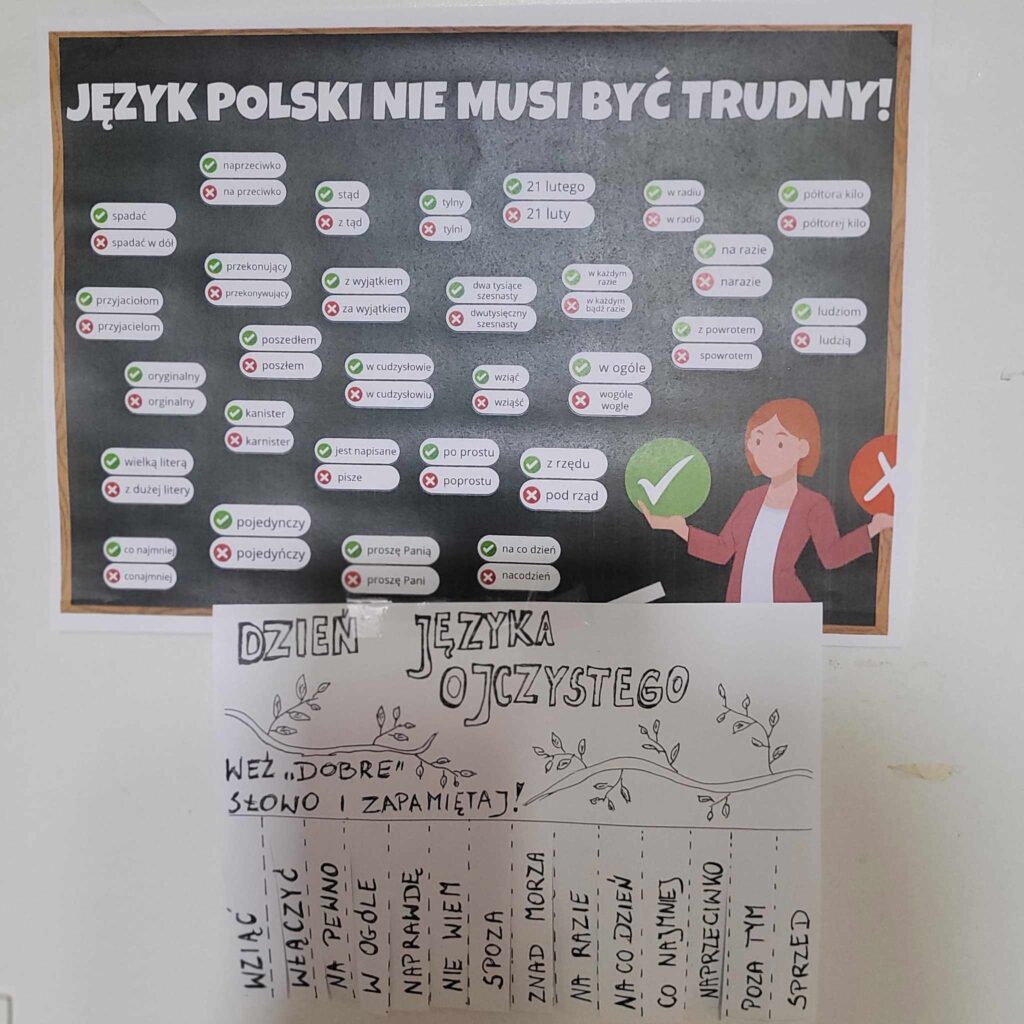 JĘZYK POLSKI NIE MUSI BYĆ TRUDNY!
naprzeciwko
na przeciwko
stąd
z tąd
tylny
tylni
21 lutego
21 luty
w radiu
w radio
półtora kilo
półtorej kilo
spadać
spadać w dół
na razie
narazie
przekonujący
przekonywujący
z wyjątkiem
za wyjątkiem
dwa tysiące
szesnasty
dwutysięczny
szesnasty
w każdym
razie
w każdym
bądź razie
przyjaciołom
przyjacielom
ludziom
ludzią
z powrotem
spowrotem
poszedłem
poszłem
w cudzysłowie
w cudzysłowiu
wziąć
wziąść
w ogóle
wogóle
wogle
oryginalny
orginalny
kanister
karnister
wielką literą
z dużej litery
jest napisane
pisze
po prostu
poprostu
z rzędu
pod rząd
pojedynczy
pojedyńczy
co najmniej
conajmniej
proszę Panią
proszę Pani
na co dzień
nacodzień
DZIEŃ JĘZYKA
OJCZYSTEGO
WEŹ „DOBRE"
SŁOWO I ZAPAMIĘTAJ!
WZIĄĆ
WŁĄCZYĆ
NA PEWNO
W OGÓLE
NAPRAWDĘ
NIE WIEM
SPOZA
ZNAD MORZA
NA RAZIE
NA CO DZIEŃ
CO NAJMNIEJ
NAPRZECIWKO
POZA TYM
SPRZED